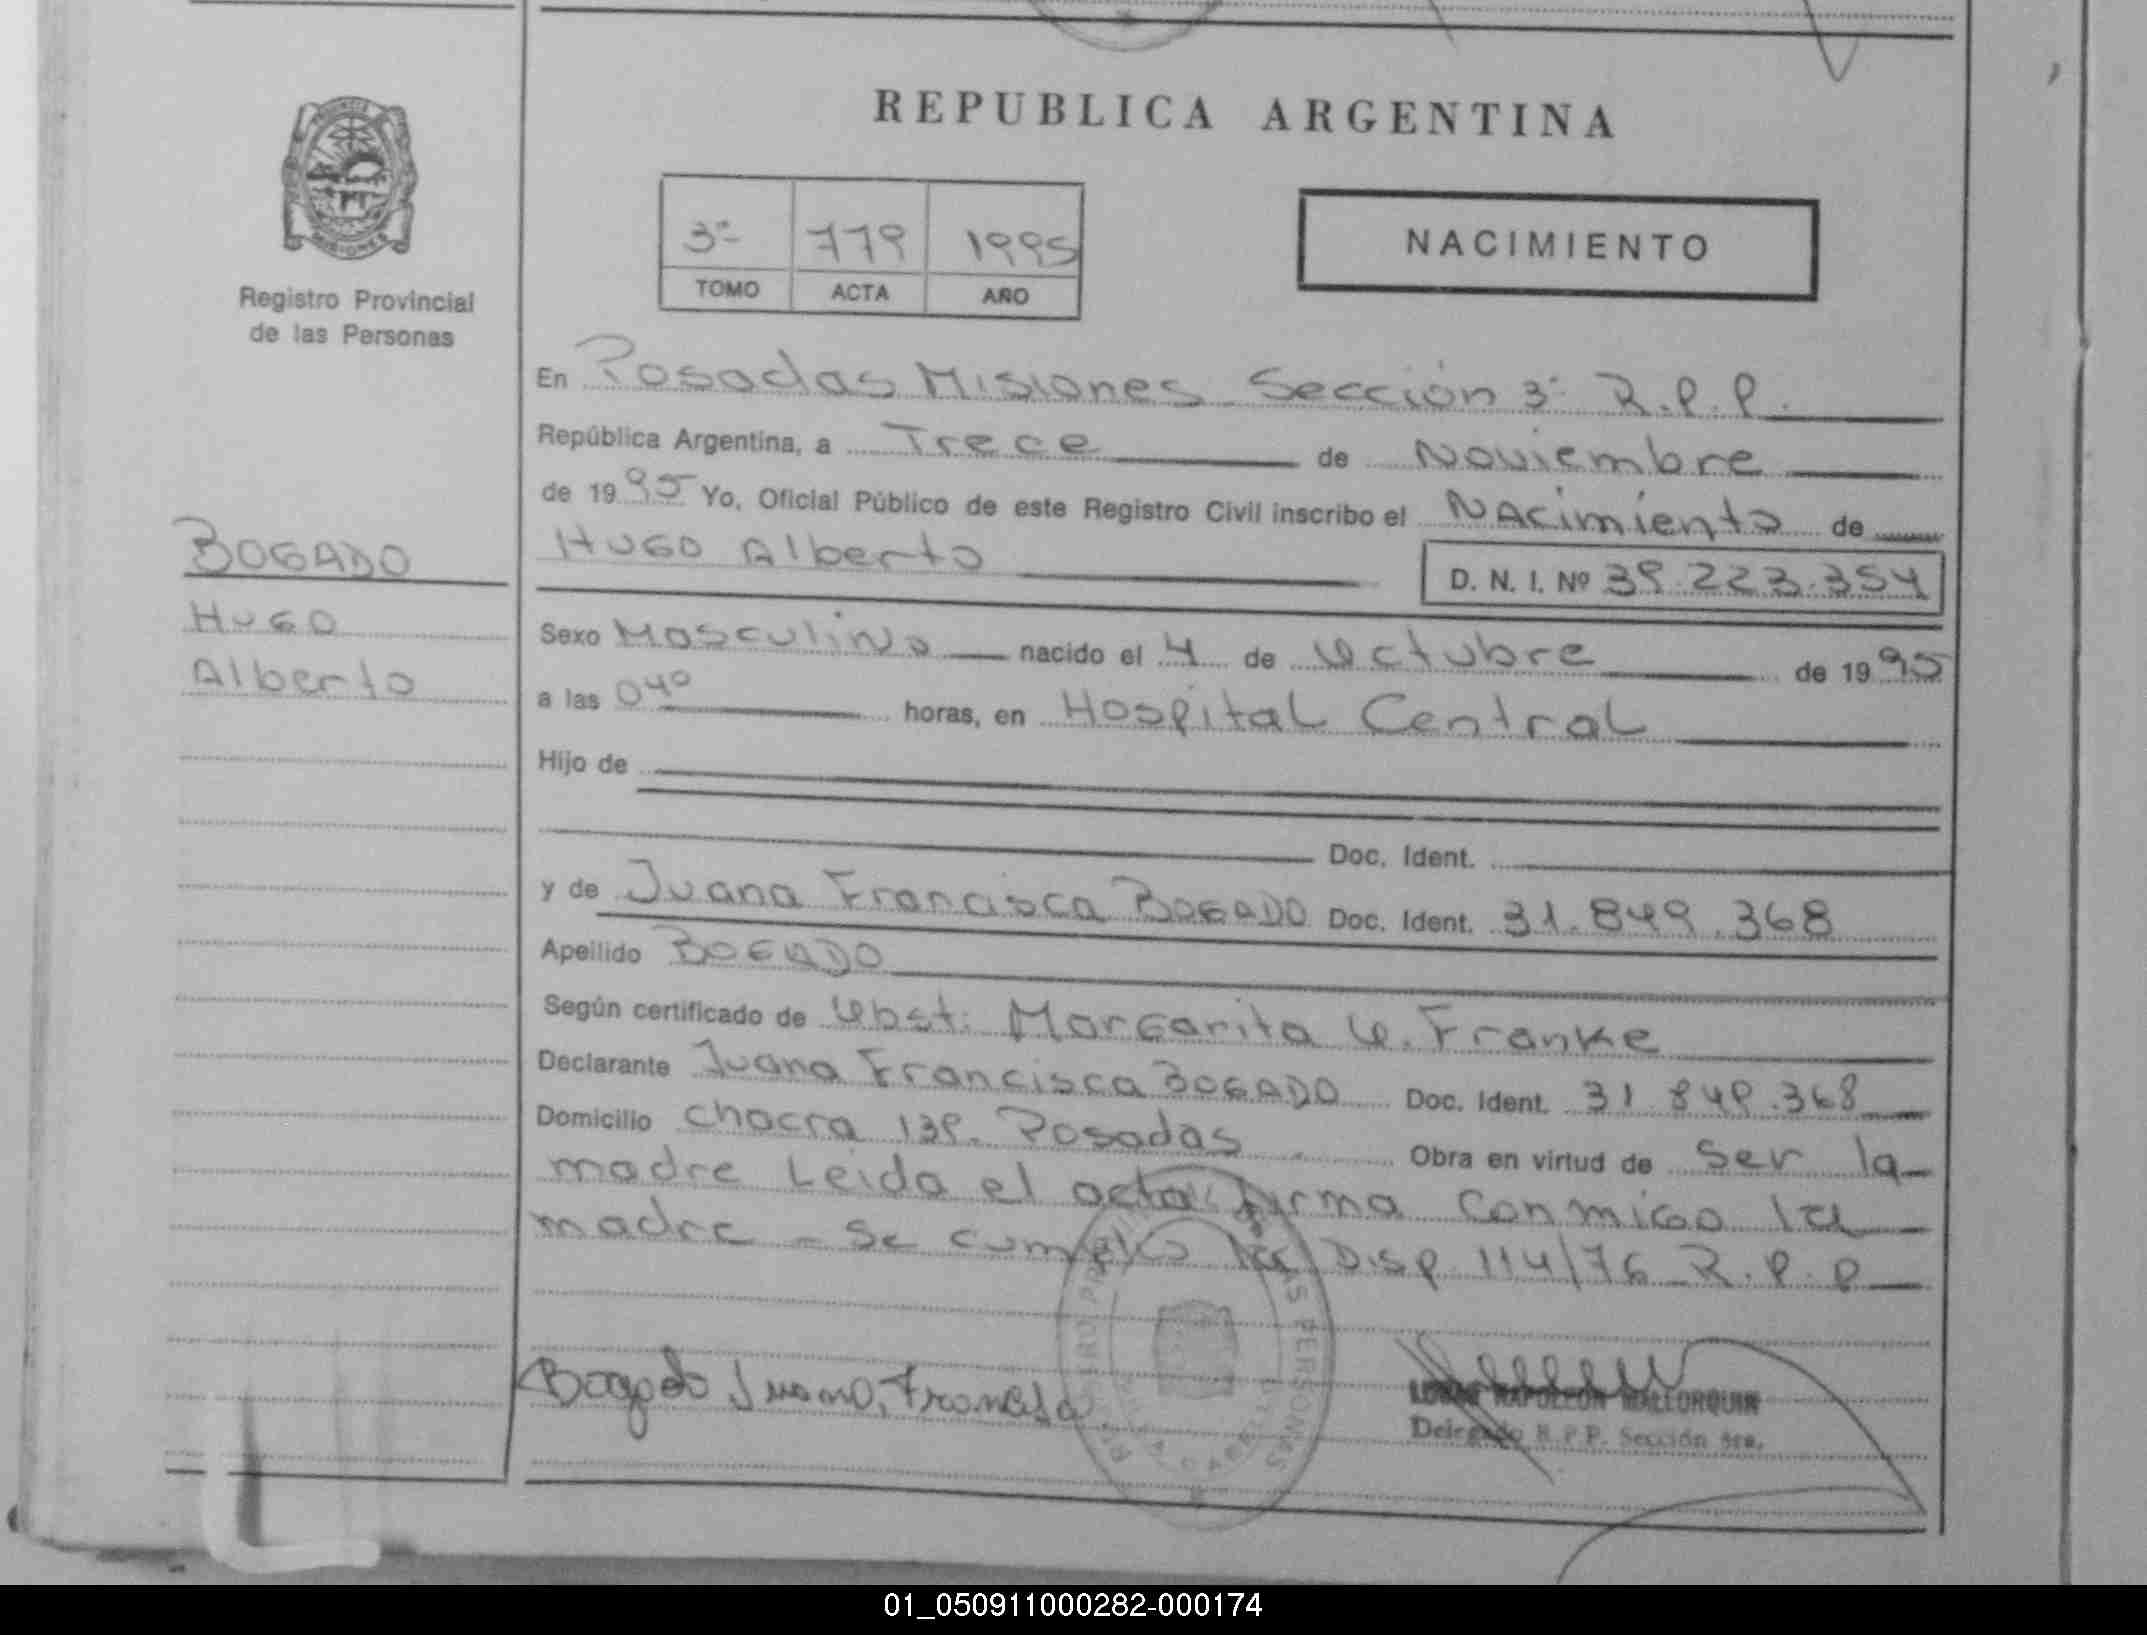 REPUBLICA ARGENTINA
MISIONES
Registro Provincial
de las Personas
3º 779 1995
TOMO ACTA AÑO
NACIMIENTO
En Posadas Misiones Sección 3º R.P.P.
República Argentina, a Trece de Noviembre
de 1995 Yo, Oficial Público de este Registro Civil inscribo el Nacimiento de
Hugo Alberto D. N. I. Nº 39.223.354
BOGADO
Hugo
Alberto
Sexo Masculino nacido el 4 de Octubre de 1995
a las 04º horas, en Hospital Central
Hijo de
Doc. Ident.
y de Juana Francisca BOGADO Doc. Ident. 31.849.368
Apellido BOGADO
Según certificado de Obst. Margarita O. Franke
Declarante Juana Francisca BOGADO Doc. Ident. 31.849.368
Domicilio Chacra 139. Posadas Obra en virtud de Ser la
madre Leida el acta firma Conmigo la
madre - Se cumplio Disp 114/76 R.P.P
Bogado Juana, Francisca
NAPOLEON MALLORQUIN
Delegado R.P.P. Sección 3ra.
01_050911000282-000174